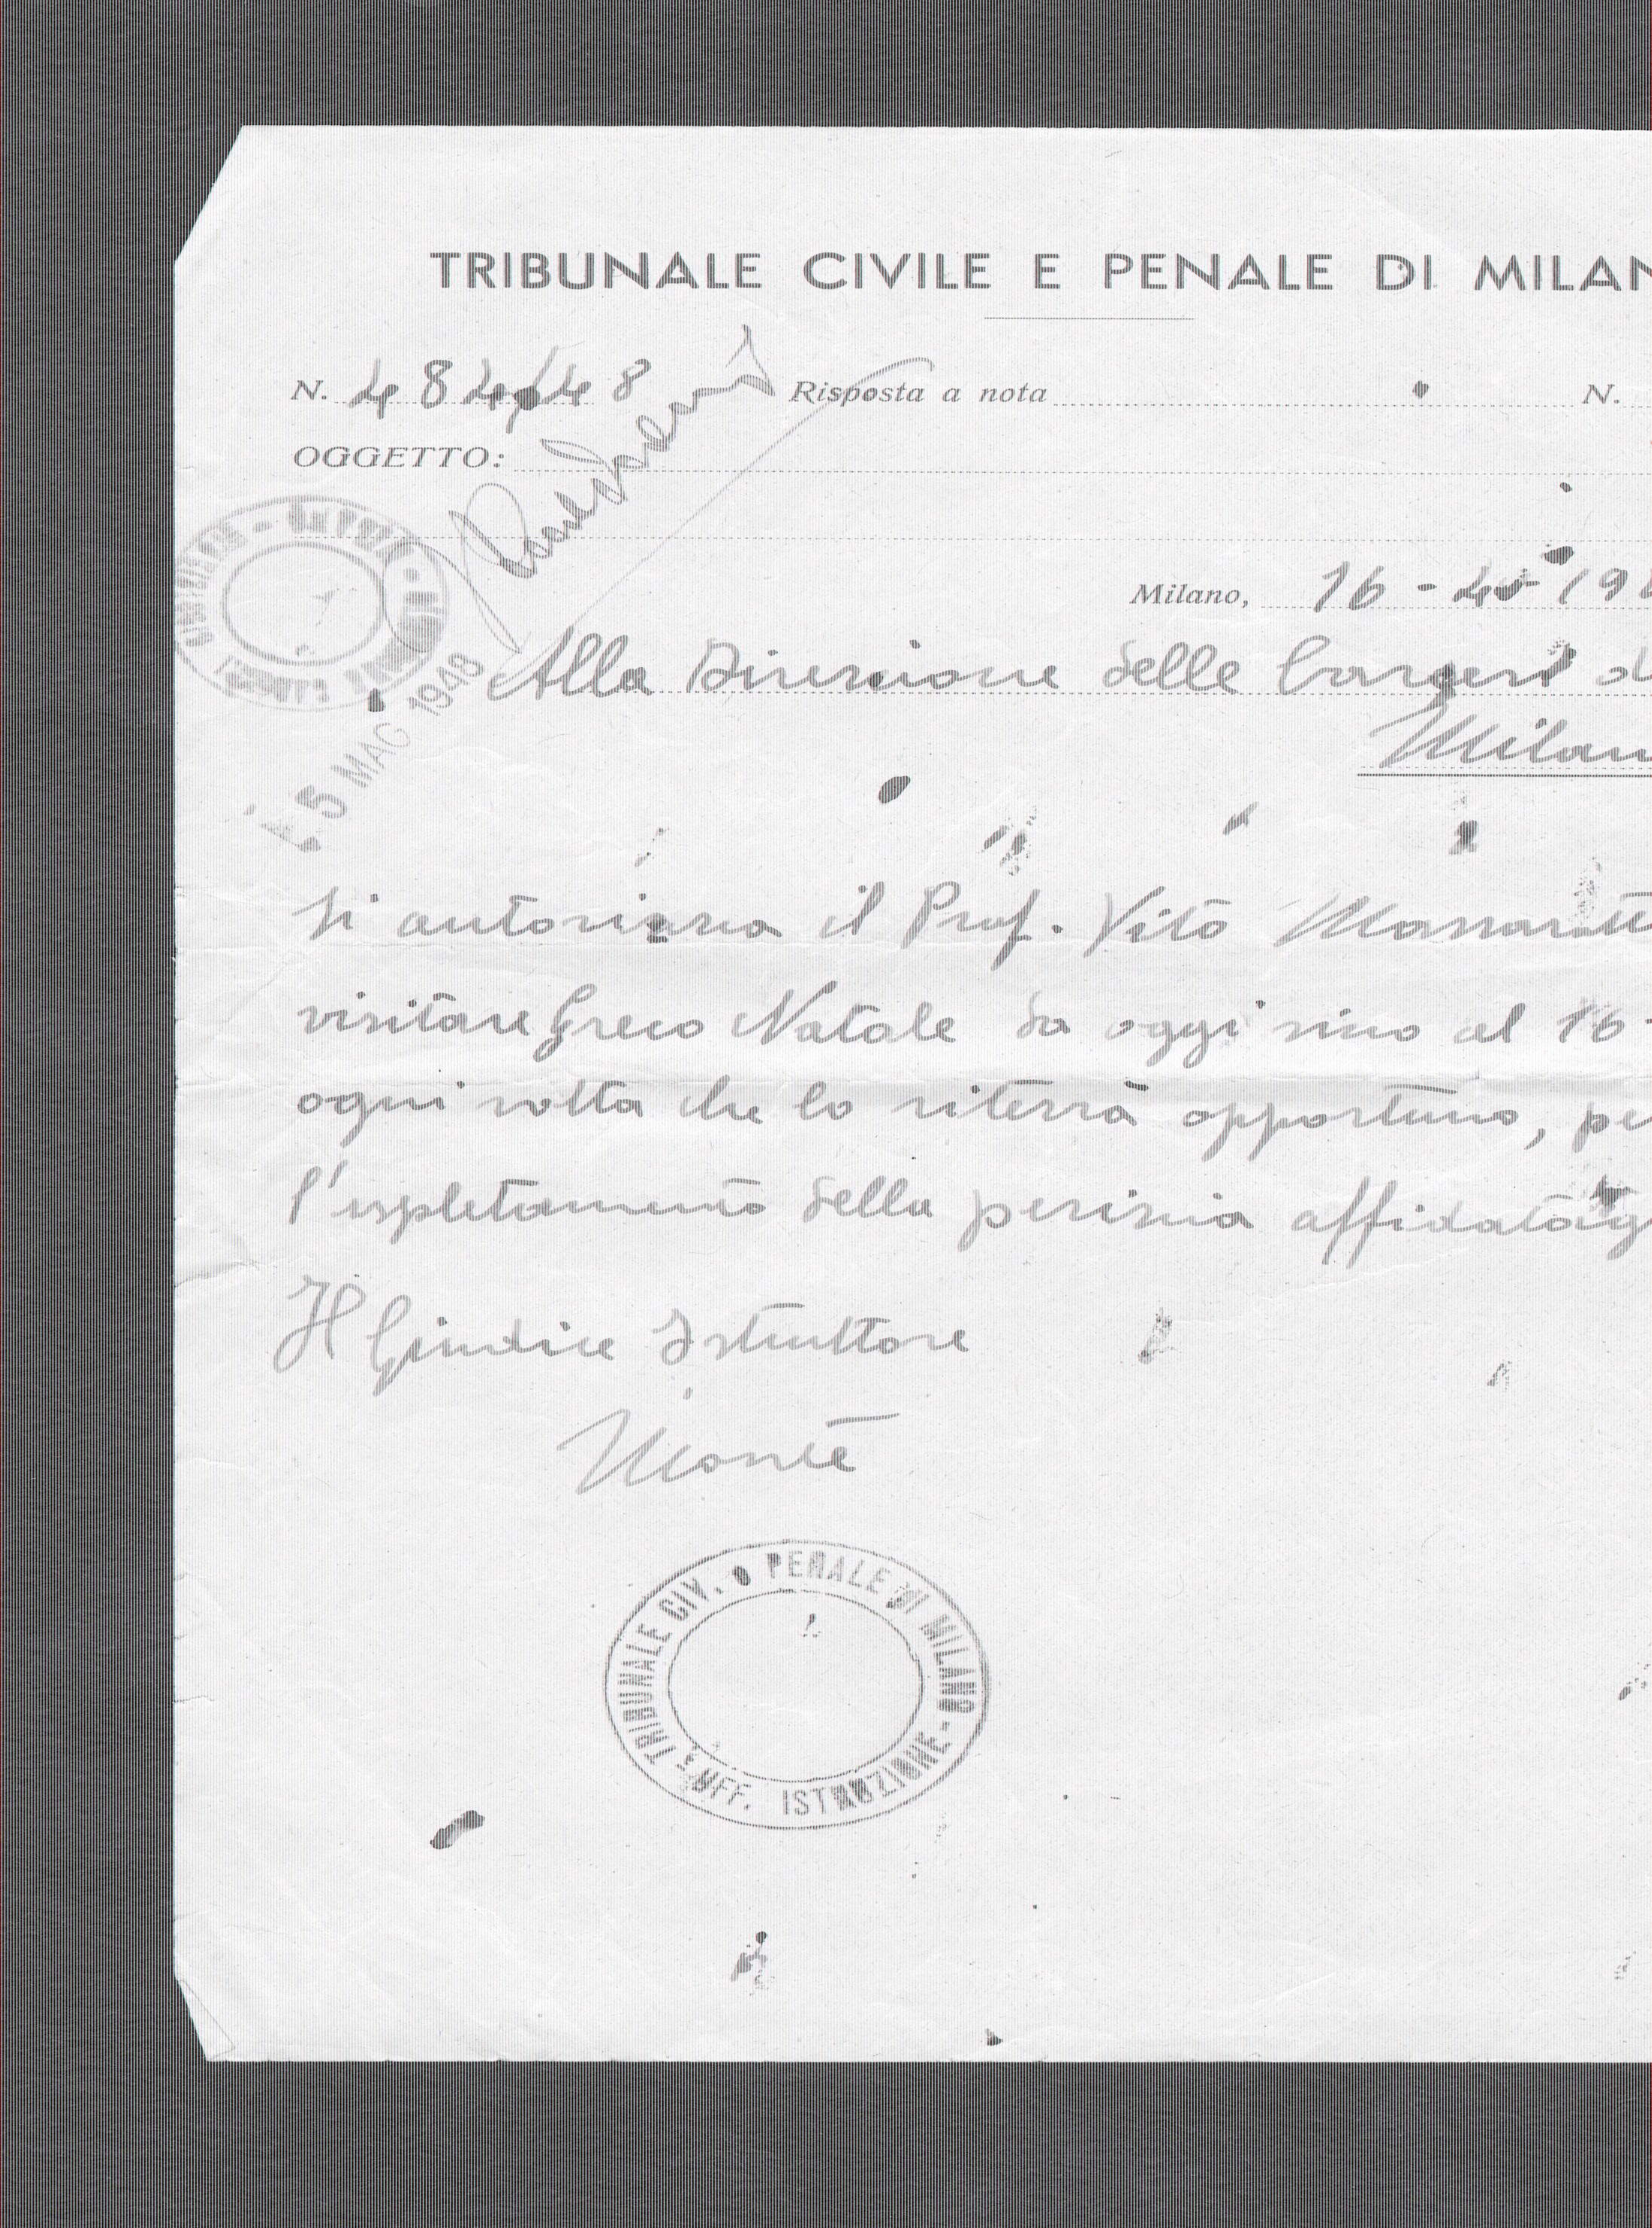 TRIBUNALE CIVILE E PENALE DI MILAN
N. 484/48 Risposta a nota N.
OGGETTO:
Milano, 16-4-19
Alla Direzione delle Carceri d
Milan
5 MAG 1948
Si autorizza il Prof. Vito Massarott
visitare Greco Natale da oggi sino al 16-
ogni volta che lo riterrà opportuno, pe
l'espletamento della perizia affidatag
Il Giudice Istruttore
TRIBUNALE CIV. E PENALE DI MILANO - UFF. ISTRUZIONE -